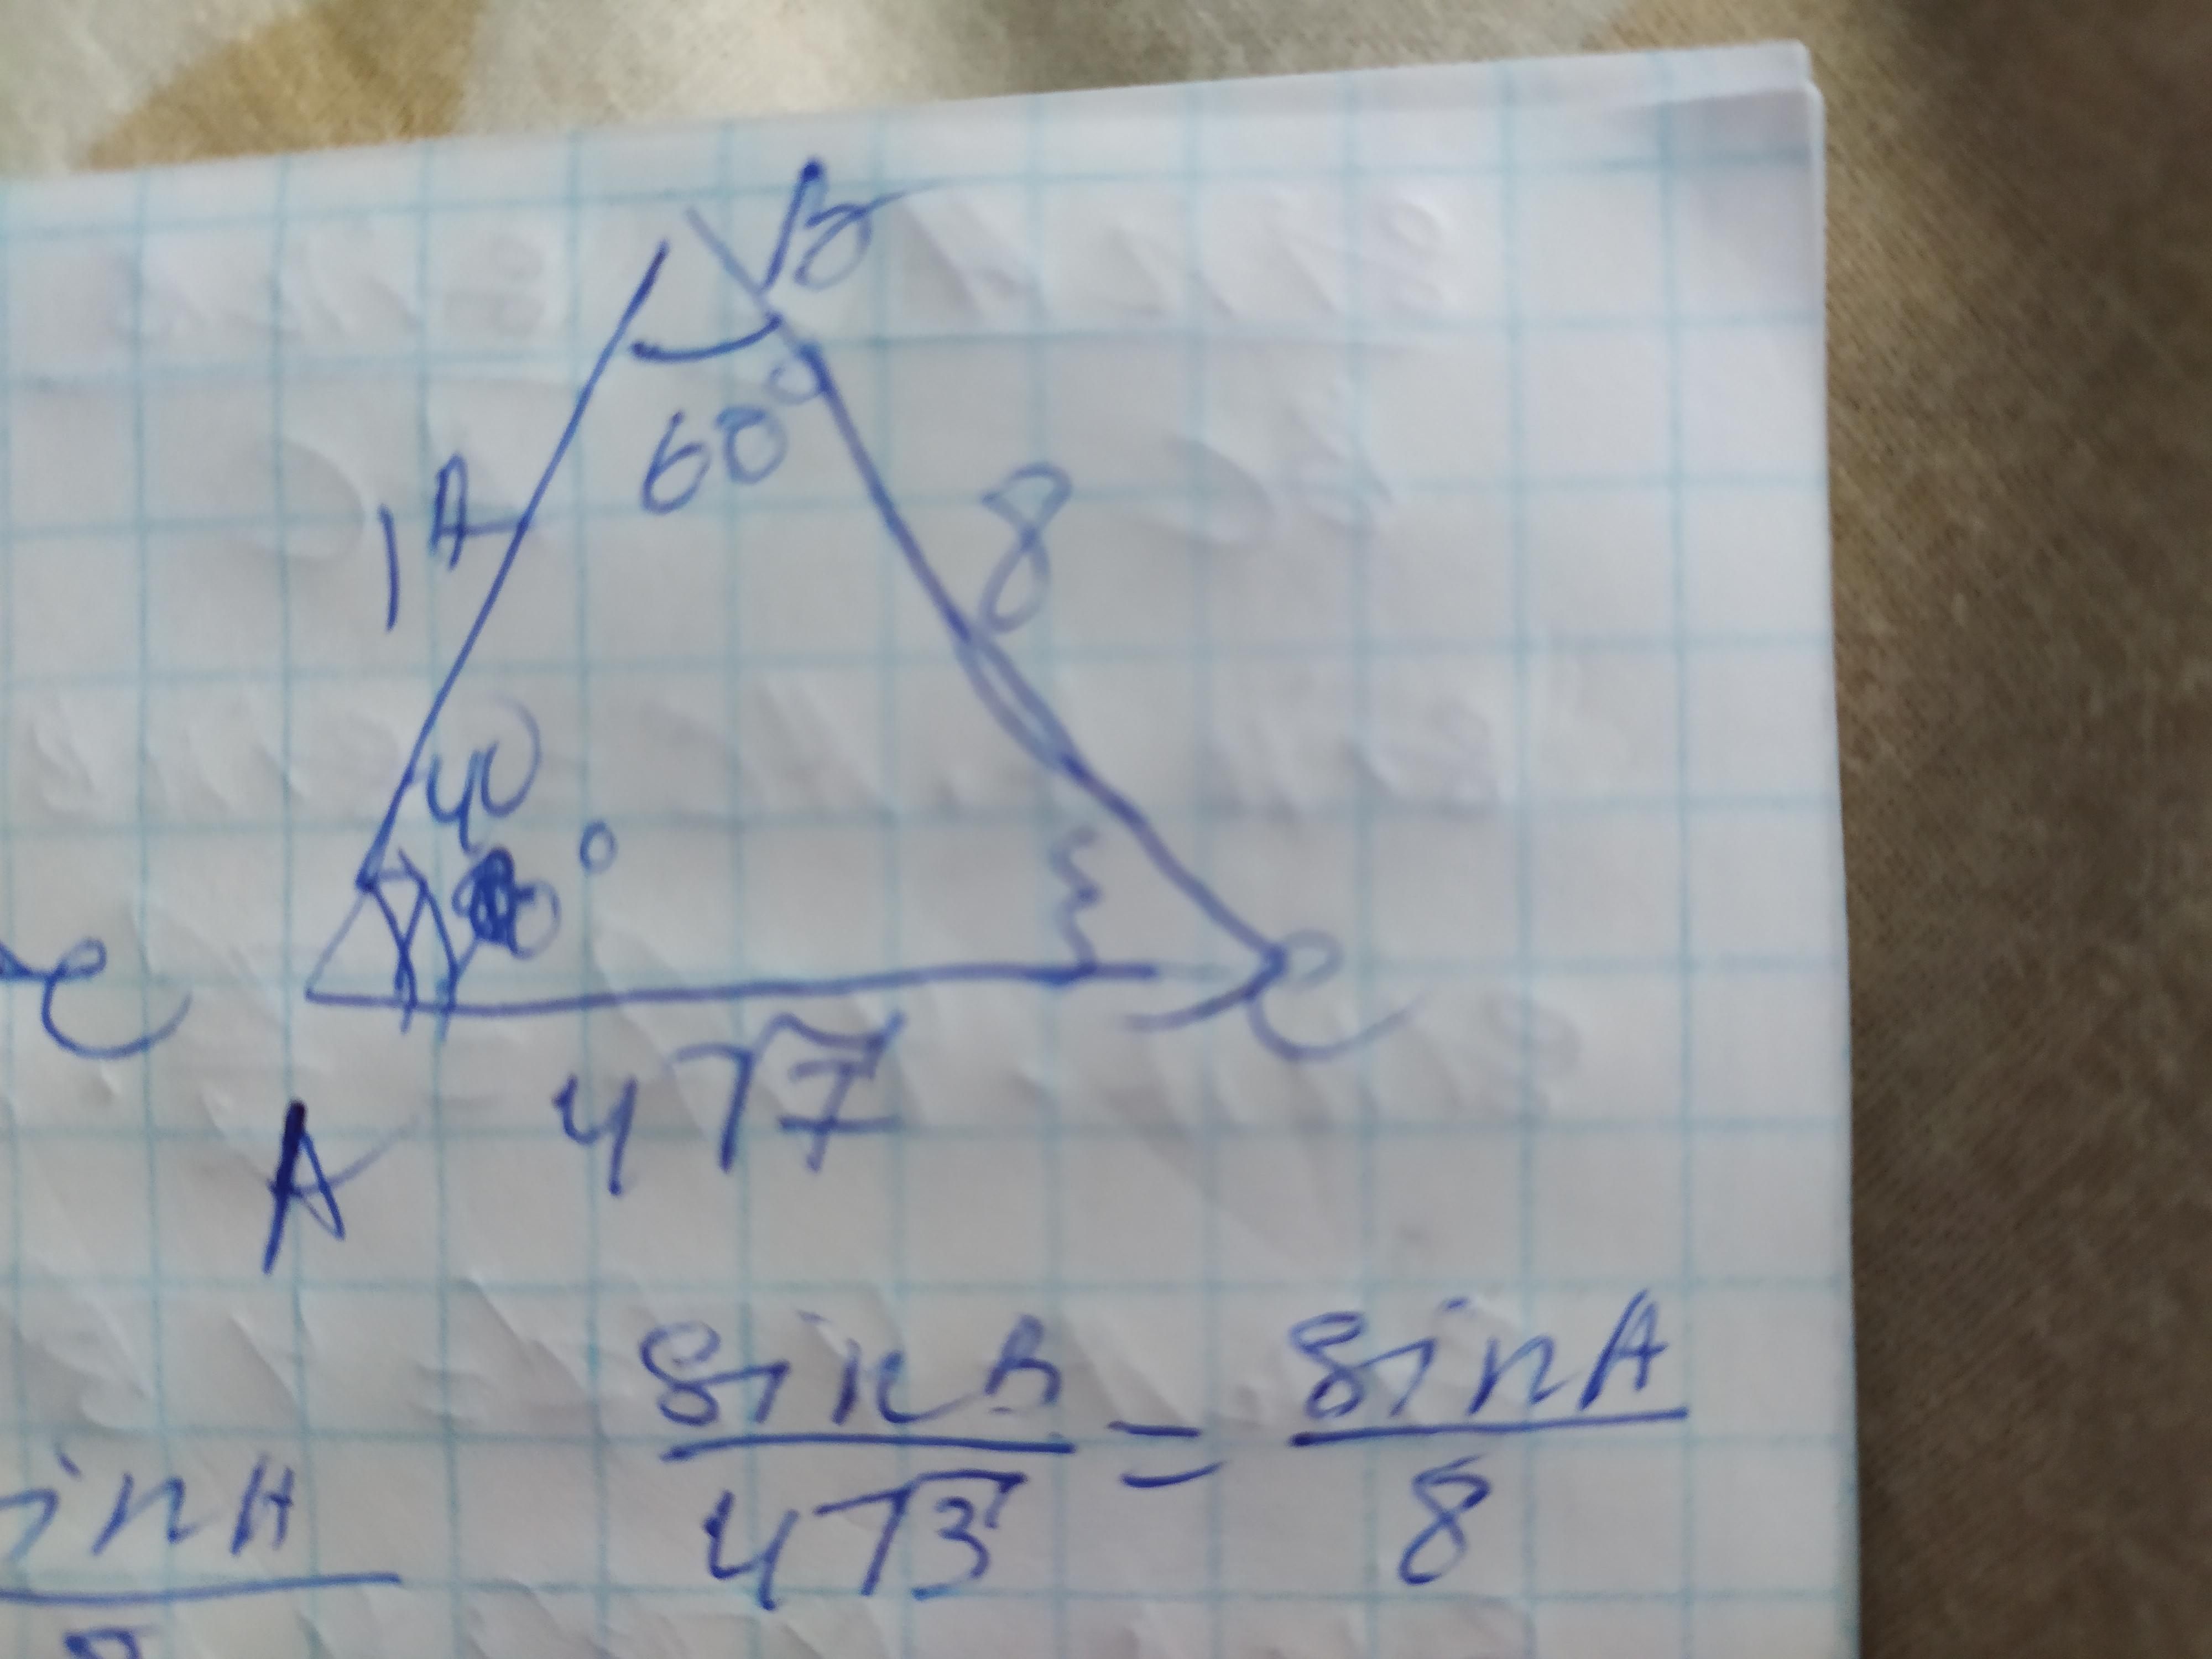 B
60°
14
8
40°
C
C
4√7
A
sin B / 4√3 = sin A / 8
sin A